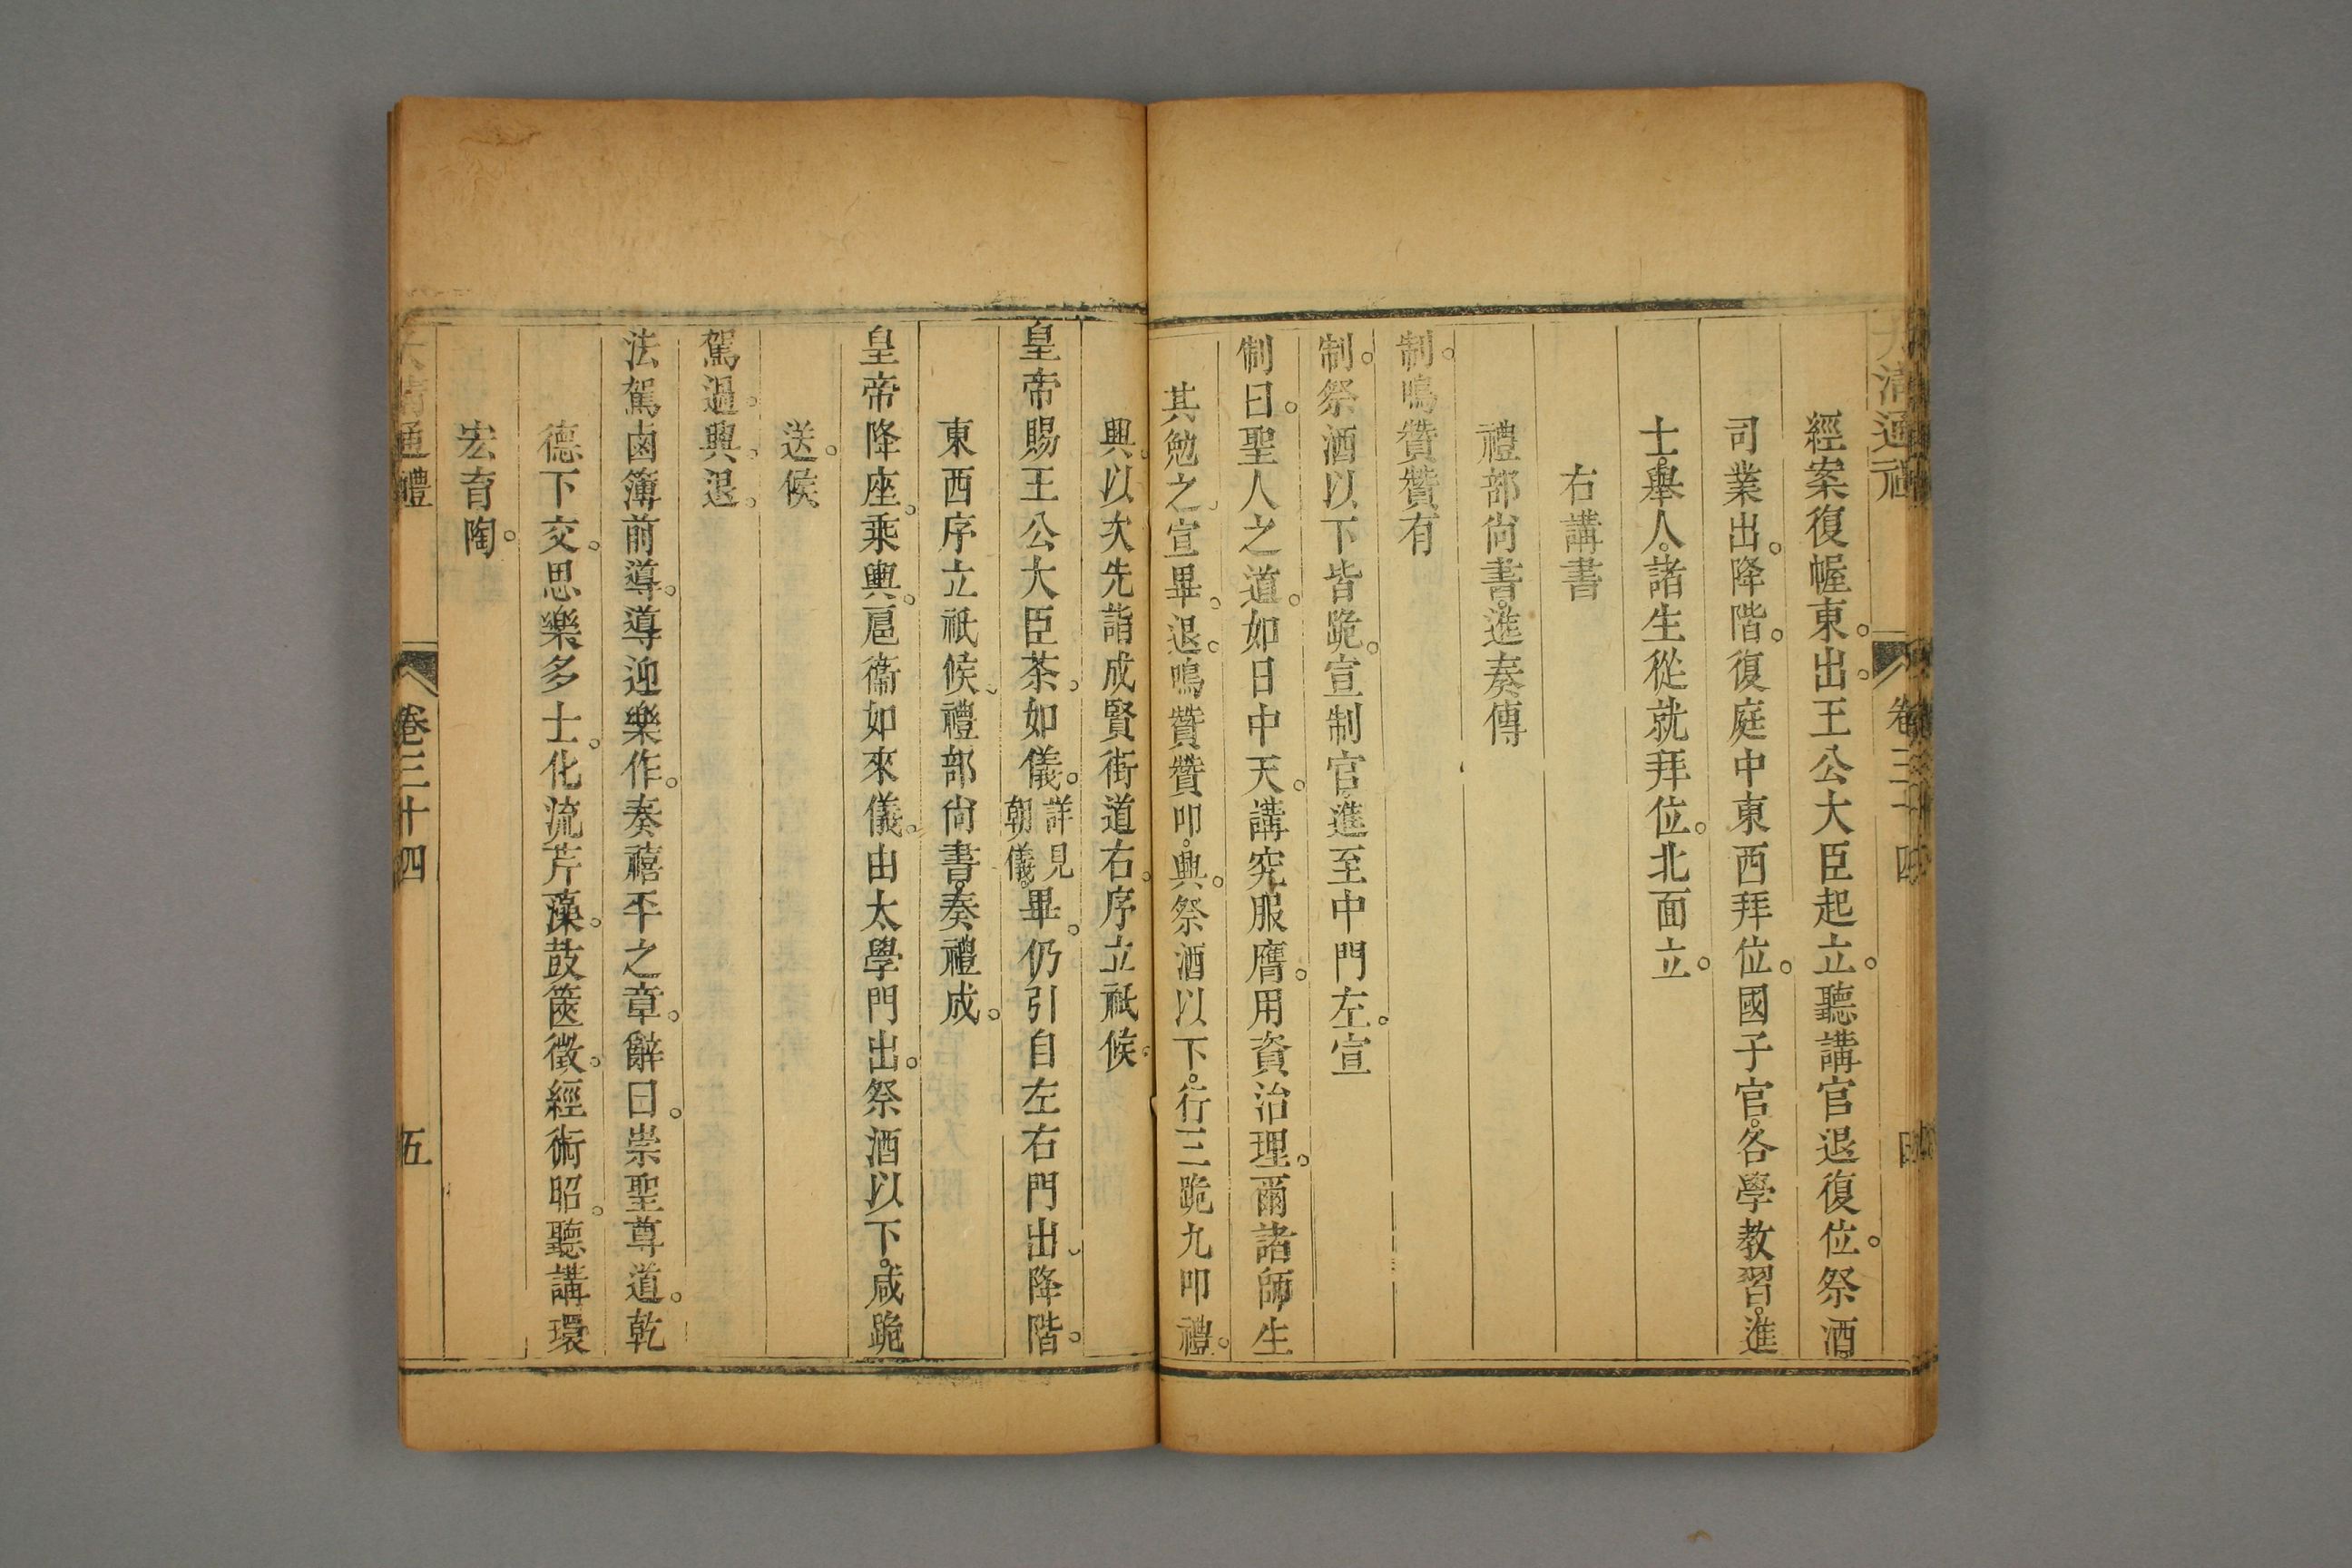 大清通禮 卷三十四 四
經案復幄東。出。王公大臣起立。聽講官退復位。祭酒。
司業出。降階。復庭中東西拜位。國子官。各學教習。進
士。舉人。諸生從就拜位。北面立。
右講書
禮部尚書。進奏傳
制。鳴贊贊有
制。祭酒以下皆跪。宣制官。進至中門左。宣
制曰。聖人之道。如日中天。講究服膺。用資治理。爾諸師生
其勉之。宣畢。退。鳴贊贊叩。興。祭酒以下。行三跪九叩禮。
興。以次先詣成賢街道右。序立祇候。
皇帝賜王公大臣茶。如儀。詳見朝儀。畢。仍引自左右門出。降階。
東西序立祇候。禮部尚書。奏禮成。
皇帝降座。乘輿。扈衞如來儀。由太學門出。祭酒以下。咸跪
送。候
駕過。興。退。
法駕鹵簿前導。導迎樂作。奏禧平之章。辭曰。崇聖尊道。乾
德下交。思樂多士。化流芹藻。鼓篋徵。經術昭。聽講環
宏育陶。
大清通禮 卷三十四 五